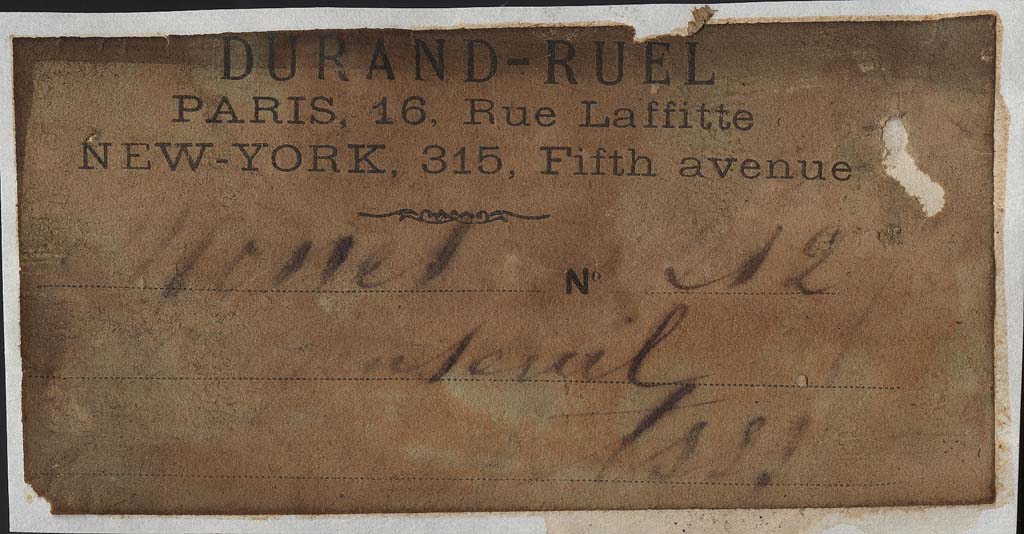 DURAND-RUEL
PARIS, 16, Rue Laffitte
NEW-YORK, 315, Fifth avenue
Monet Nº
nteuil